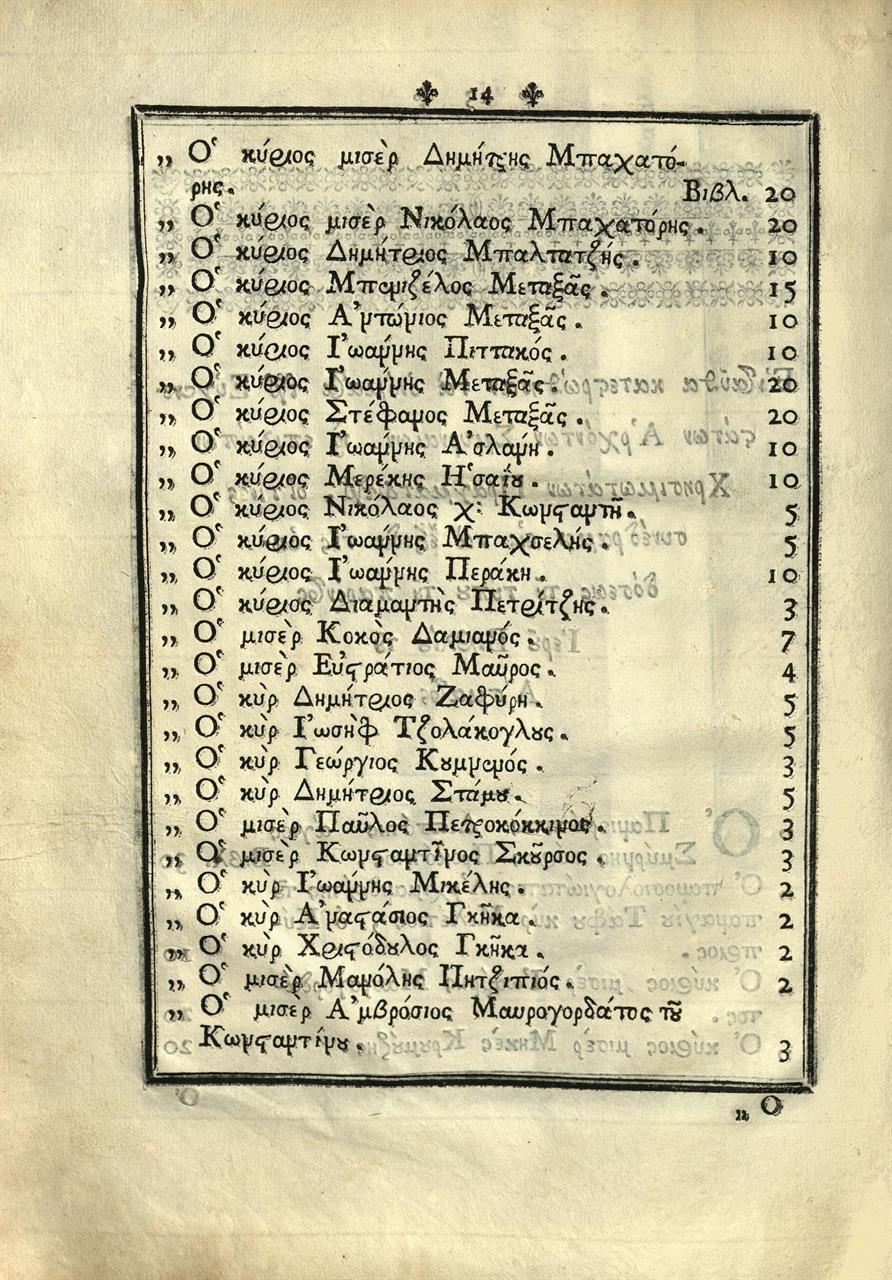 14
„ Ὁ κύριος μισὲρ Δημήτρης Μπαχατό-
ρης. Βιβλ. 20
„ Ὁ κύριος μισὲρ Νικόλαος Μπαχατόρης. 20
„ Ὁ κύριος Δημήτριος Μπαλτατζής. 10
„ Ὁ κύριος Μπενιζέλος Μεταξᾶς. 15
„ Ὁ κύριος Ἀντώνιος Μεταξᾶς. 10
„ Ὁ κύριος Ἰωαννης Πιττακός. 10
„ Ὁ κύριος Ἰωάννης Μεταξᾶς. 20
„ Ὁ κύριος Στέφανος Μεταξᾶς. 20
„ Ὁ κύριος Ἰωάννης Ἀσλανή. 10
„ Ὁ κύριος Μερέκης Ἡσαΐου. 10
„ Ὁ κύριος Νικόλαος χ: Κωνσταντῆ. 5
„ Ὁ κύριος Ἰωάννης Μπαχσελής. 5
„ Ὁ κύριος Ἰωάννης Περάκη. 10
„ Ὁ κύριος Διαμαντὴς Πετρίτζης. 3
„ Ὁ μισὲρ Κοκὸς Δαμιανός. 7
„ Ὁ μισὲρ Εὐστράτιος Μαῦρος. 4
„ Ὁ κὺρ Δημήτριος Ζαφύρη. 5
„ Ὁ κὺρ Ἰωσὴφ Τζολάκογλους. 5
„ Ὁ κὺρ Γεώργιος Κουμνενός. 3
„ Ὁ κὺρ Δημήτριος Στάμου. 5
„ Ὁ μισὲρ Παῦλος Πετροκόκκινος. 3
„ Ὁ μισὲρ Κωνσταντῖνος Σκοῦρσος. 3
„ Ὁ κὺρ Ἰωάννης Μικέλης. 2
„ Ὁ κὺρ Ἀναστάσιος Γκῆκα. 2
„ Ὁ κὺρ Χριστόδουλος Γκῆκα. 2
„ Ὁ μισὲρ Μανόλης Πητζιπιός. 2
„ Ὁ μισὲρ Ἀμβρόσιος Μαυρογορδάτος τοῦ
Κωνσταντίνου. 3
„ Ὁ